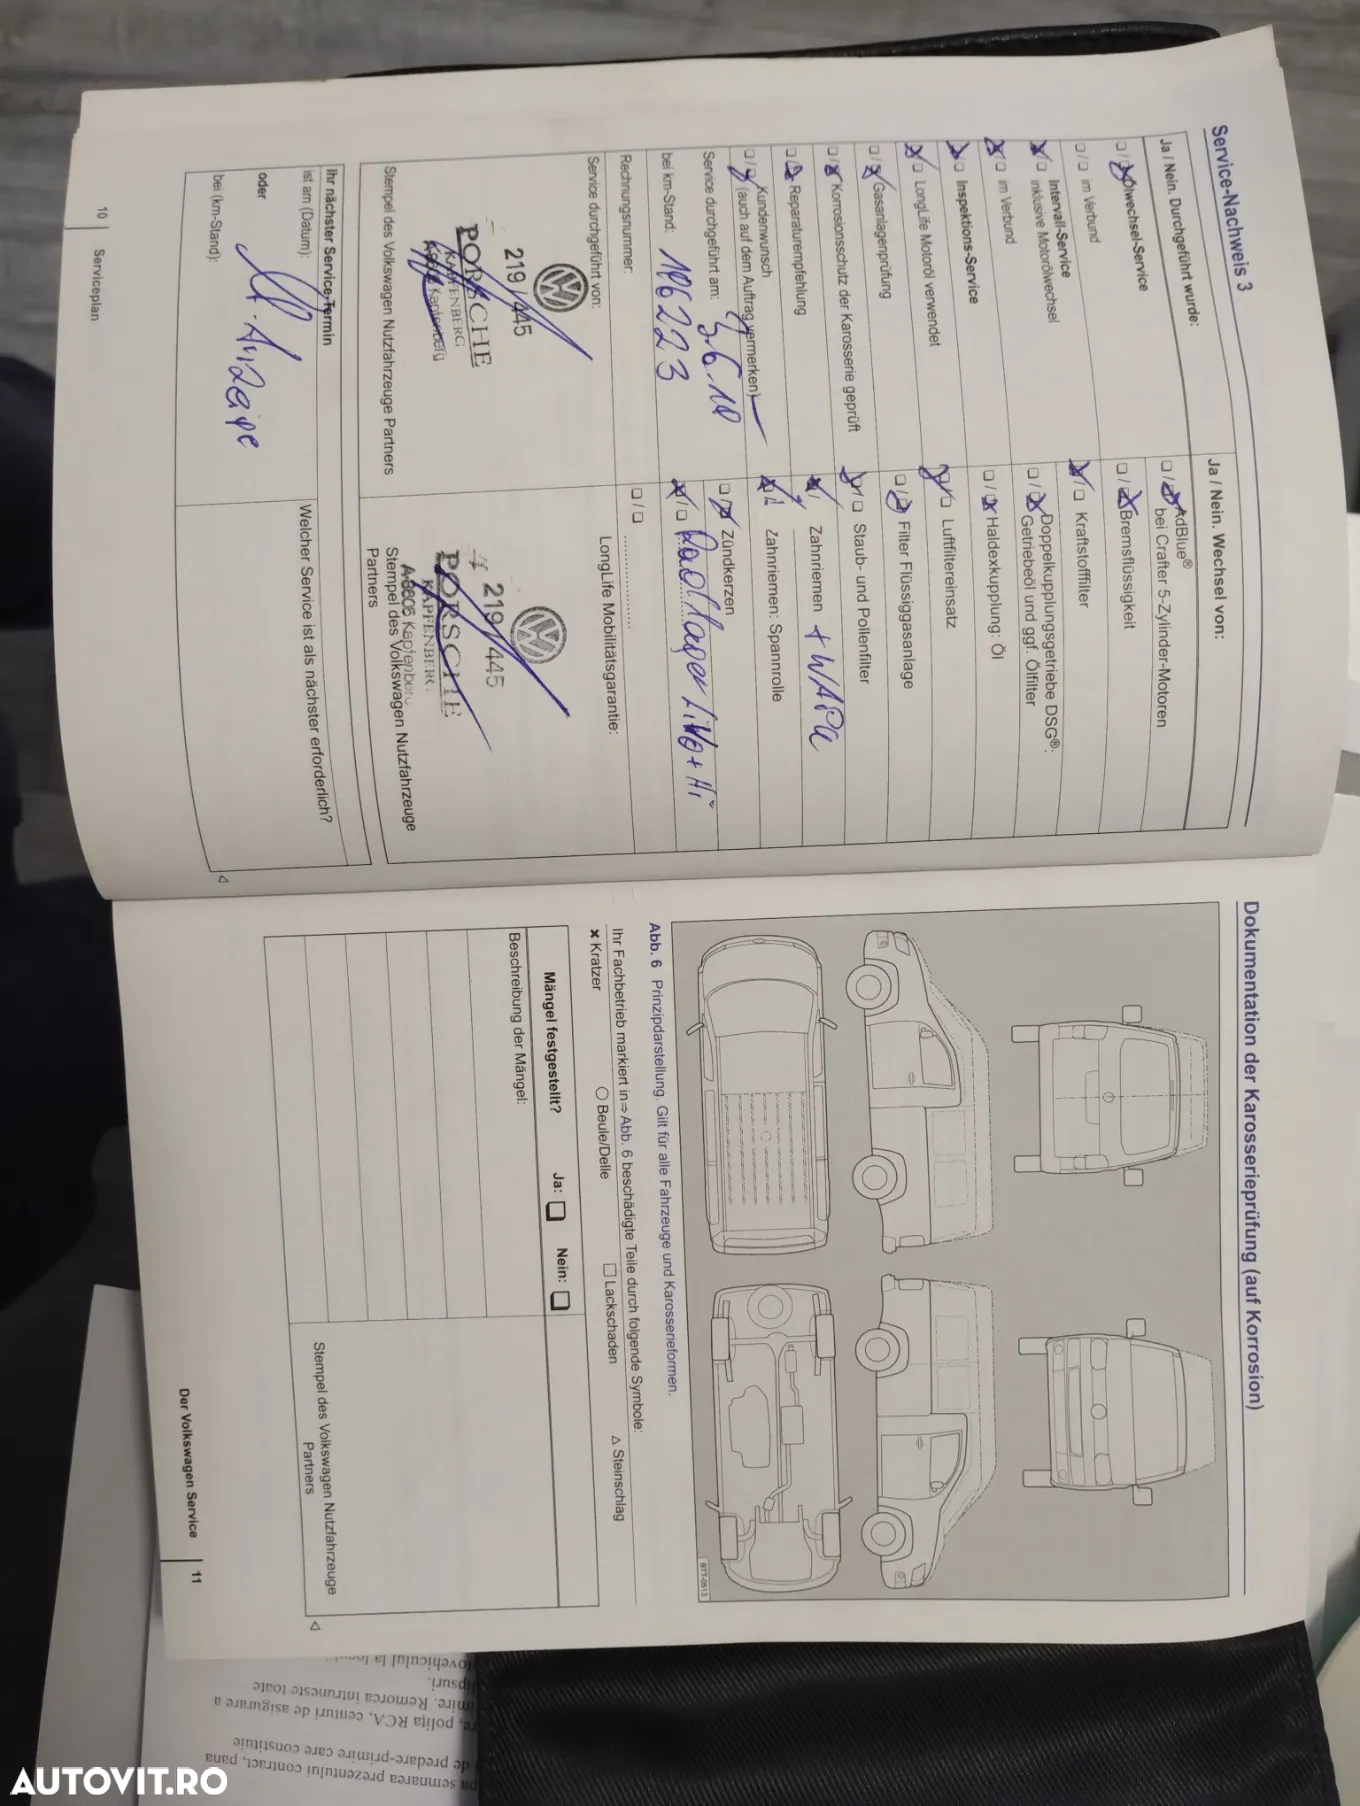 Service-Nachweis 3
Ja / Nein. Durchgeführt wurde:
Ölwechsel-Service
im Verbund
Intervall-Service
inklusive Motorölwechsel
im Verbund
Inspektions-Service
LongLife Motoröl verwendet
Gasanlagenprüfung
Korrosionsschutz der Karosserie geprüft
Reparaturempfehlung
Kundenwunsch
(auch auf dem Auftrag vermerken)
Service durchgeführt am:
bei km-Stand: 196223
Rechnungsnummer:
Service durchgeführt von:
219/445
PORSCHE
KAPFENBERG
A-8605 Kapfenberg
Stempel des Volkswagen Nutzfahrzeuge Partners
Ja / Nein. Wechsel von:
AdBlue®
bei Crafter 5-Zylinder-Motoren
Bremsflüssigkeit
Kraftstofffilter
Doppelkupplungsgetriebe DSG®:
Getriebeöl und ggf. Ölfilter
Haldexkupplung: Öl
Luftfiltereinsatz
Filter Flüssiggasanlage
Staub- und Pollenfilter
Zahnriemen + WAPU
Zahnriemen: Spannrolle
Zündkerzen
Radlager
LongLife Mobilitätsgarantie:
219/445
PORSCHE
KAPFENBERG
A-8605 Kapfenberg
Stempel des Volkswagen Nutzfahrzeuge
Partners
Ihr nächster Service-Termin
ist am (Datum):
oder
lt. Anzeige
bei (km-Stand):
Welcher Service ist als nächster erforderlich?
10 Serviceplan
Dokumentation der Karosserieprüfung (auf Korrosion)
BTT-0513
Abb. 6 Prinzipdarstellung. Gilt für alle Fahrzeuge und Karosserieformen.
Ihr Fachbetrieb markiert in ⇒ Abb. 6 beschädigte Teile durch folgende Symbole:
✗ Kratzer ○ Beule/Delle □ Lackschaden △ Steinschlag
Mängel festgestellt? Ja: □ Nein: □
Beschreibung der Mängel:
Stempel des Volkswagen Nutzfahrzeuge
Partners
Der Volkswagen Service 11
pa semnarea prezentului contract, pana
de predare-primire care constituie
polița RCA, centuri de asigurare a
Remorca intruneste toate
AUTOVIT.RO